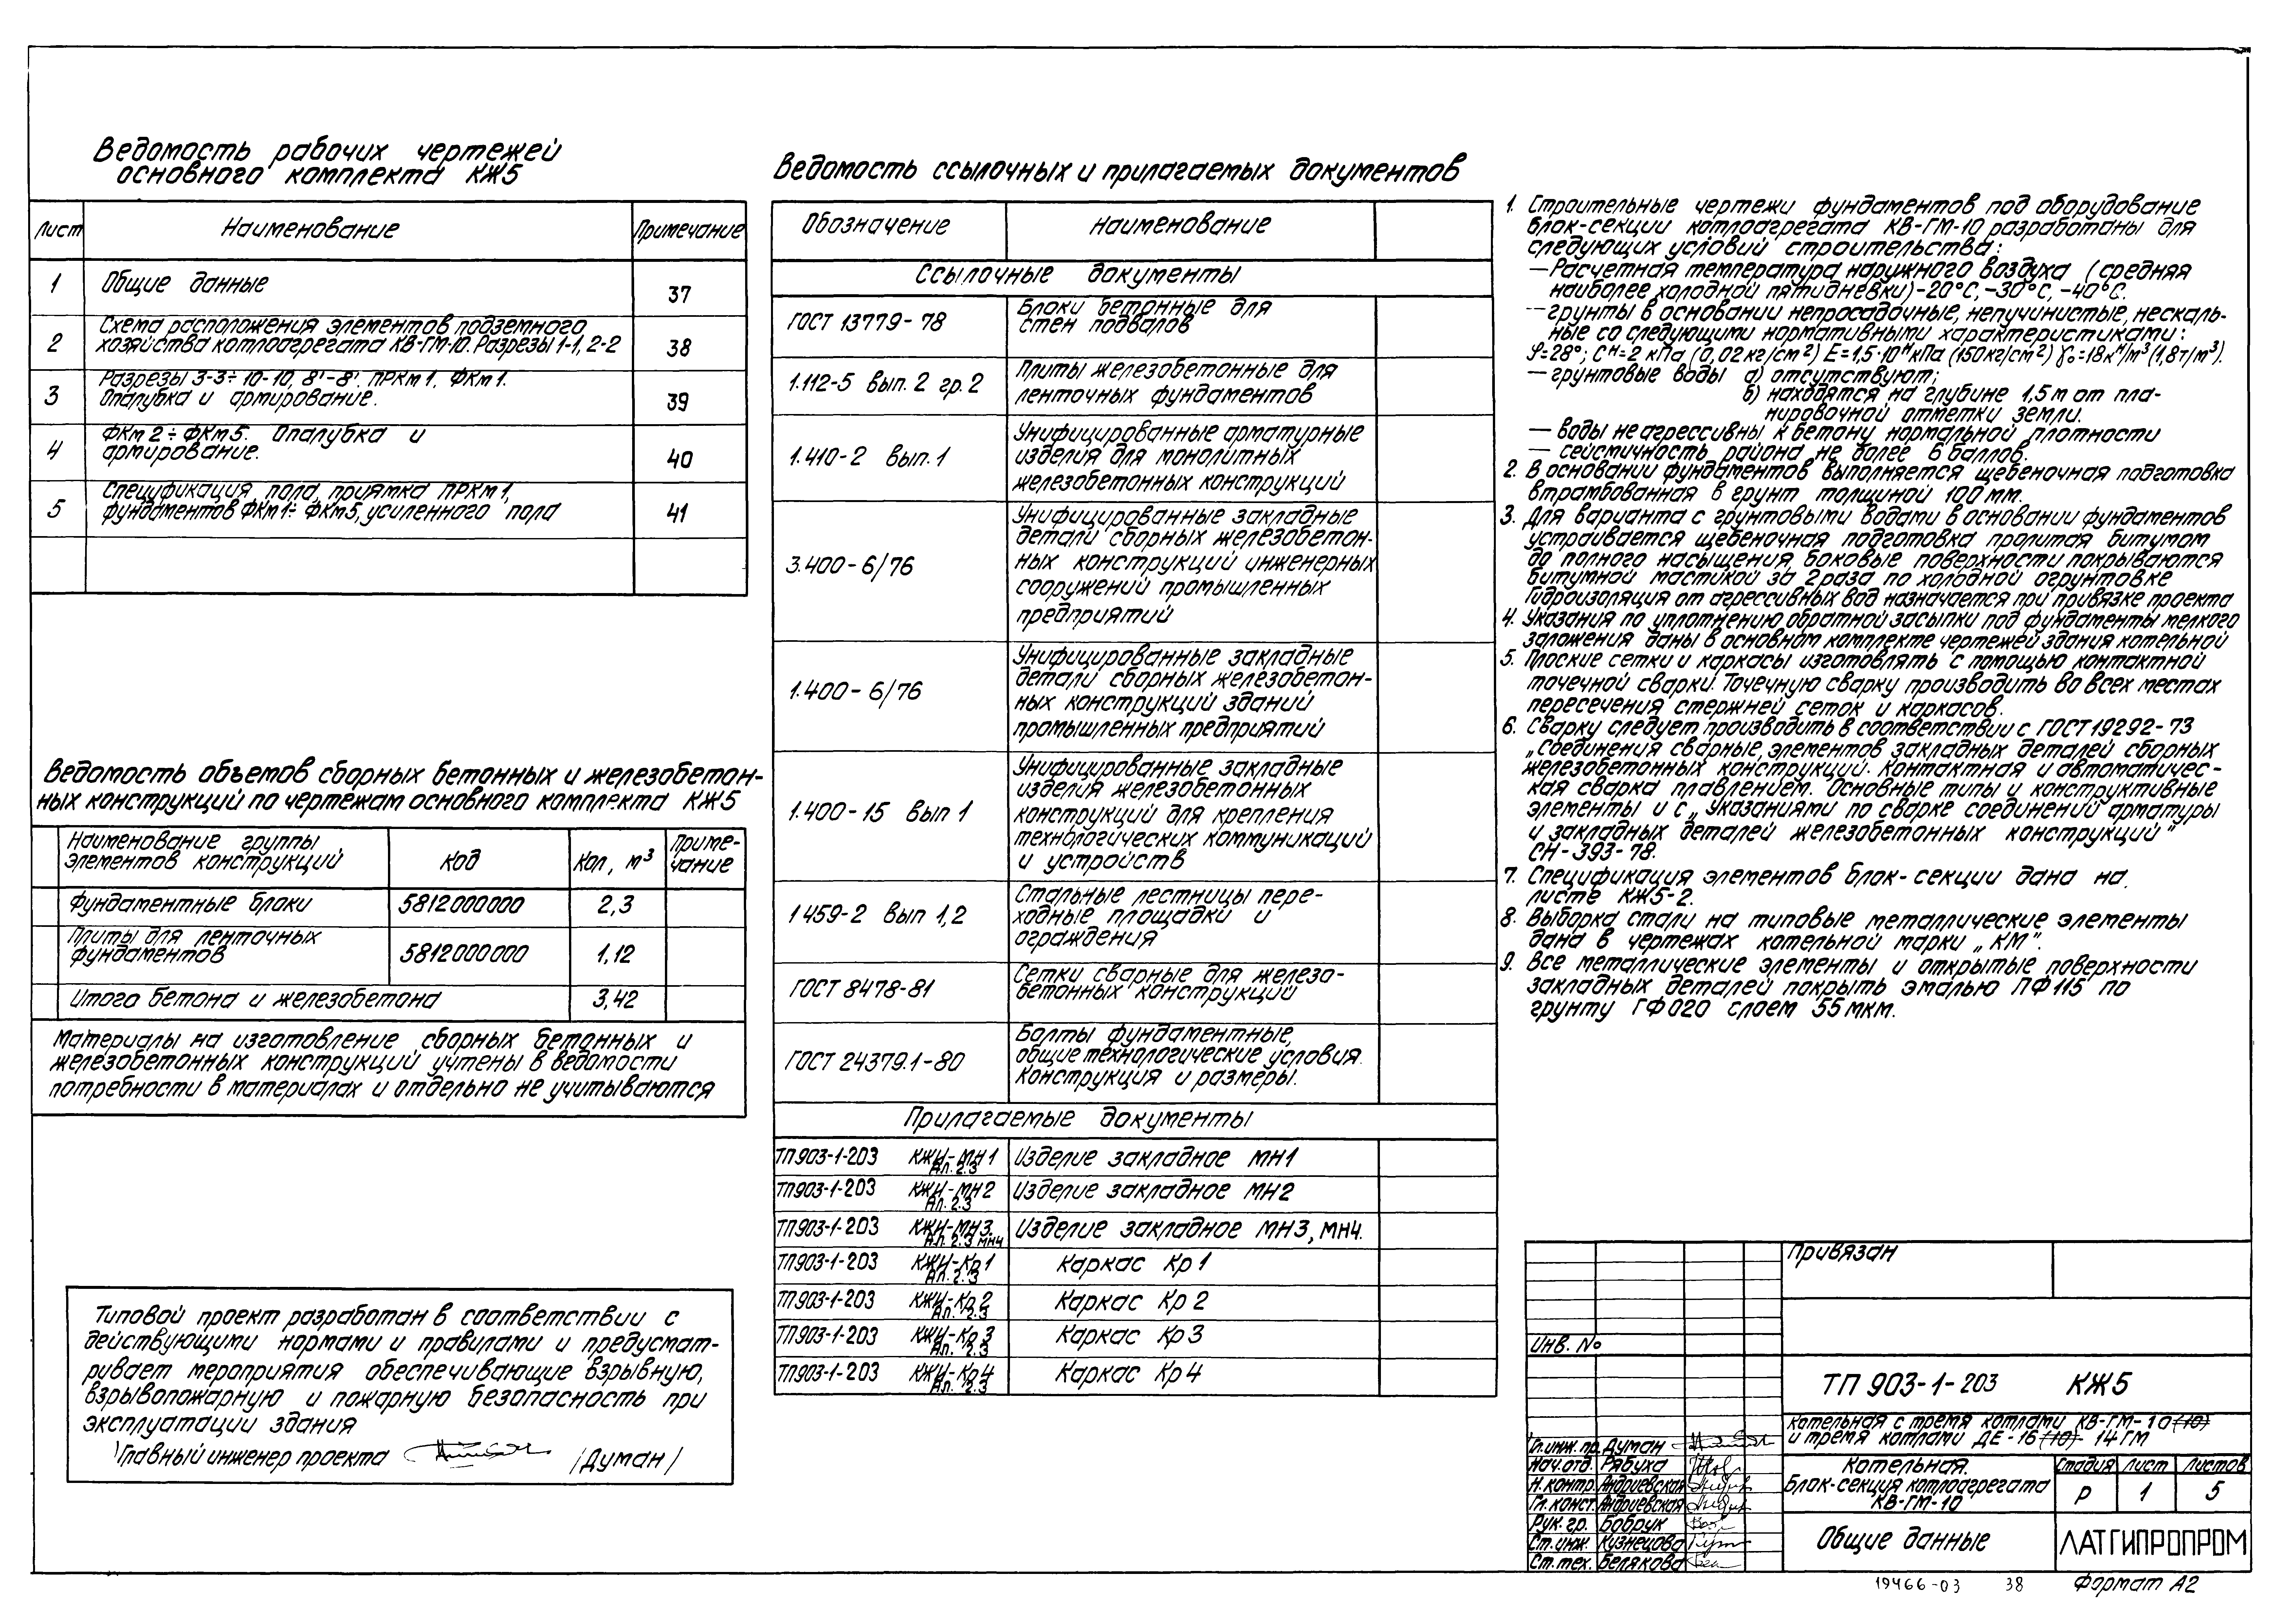 Ведомость рабочих чертежей
основного комплекта КЖ5
Лист Наименование Примечание
1 Общие данные 37
2 Схема расположения элементов подземного
хозяйства котлоагрегата КВ-ГМ-10. Разрезы 1-1, 2-2 38
3 Разрезы 3-3÷10-10, 8'-8'. ПРКм1, ФКм1.
Опалубка и армирование. 39
4 ФКм2÷ФКм5. Опалубка и
армирование. 40
5 Спецификация пола, приямка ПРКм1,
фундаментов ФКм1÷ФКм5, усиленного пола 41
Ведомость объемов сборных бетонных и железобетон-
ных конструкций по чертежам основного комплекта КЖ5
Наименование группы
элементов конструкций Код Кол, м³ Приме-
чание
Фундаментные блоки 5812000000 2,3
Плиты для ленточных
фундаментов 5812000000 1,12
Итого бетона и железобетона 3,42
Материалы на изготовление сборных бетонных и
железобетонных конструкций учтены в ведомости
потребности в материалах и отдельно не учитываются
Типовой проект разработан в соответствии с
действующими нормами и правилами и предусмат-
ривает мероприятия обеспечивающие взрывную,
взрывопожарную и пожарную безопасность при
эксплуатации здания
Главный инженер проекта /Думан/
Ведомость ссылочных и прилагаемых документов
Обозначение Наименование
Ссылочные документы
ГОСТ 13779-78 Блоки бетонные для
стен подвалов
1.112-5 вып. 2 гр. 2 Плиты железобетонные для
ленточных фундаментов
1.410-2 вып. 1 Унифицированные арматурные
изделия для монолитных
железобетонных конструкций
3.400-6/76 Унифицированные закладные
детали сборных железобетон-
ных конструкций инженерных
сооружений промышленных
предприятий
1.400-6/76 Унифицированные закладные
детали сборных железобетон-
ных конструкций зданий
промышленных предприятий
1.400-15 вып 1 Унифицированные закладные
изделия железобетонных
конструкций для крепления
технологических коммуникаций
и устройств
1 459-2 вып 1,2 Стальные лестницы пере-
ходные площадки и
ограждения
ГОСТ 8478-81 Сетки сварные для железо-
бетонных конструкций
ГОСТ 24379.1-80 Болты фундаментные,
общие технологические условия.
Конструкция и размеры.
Прилагаемые документы
ТП903-1-203 КЖИ-МН1 Ал. 2.3 Изделие закладное МН1
ТП903-1-203 КЖИ-МН2 Ал. 2.3 Изделие закладное МН2
ТП903-1-203 КЖИ-МН3. Ал. 2.3 МН4 Изделие закладное МН3, МН4.
ТП903-1-203 КЖИ-Кр1 Ал. 2.3 Каркас Кр1
ТП903-1-203 КЖИ-Кр2 Ал. 2.3 Каркас Кр2
ТП903-1-203 КЖИ-Кр3 Ал. 2.3 Каркас Кр3
ТП903-1-203 КЖИ-Кр4 Ал. 2.3 Каркас Кр4
1. Строительные чертежи фундаментов под оборудование
блок-секции котлоагрегата КВ-ГМ-10 разработаны для
следующих условий строительства:
— Расчетная температура наружного воздуха (средняя
наиболее холодной пятидневки) -20°С, -30°С, -40°С.
— грунты в основании непросадочные, непучинистые, нескаль-
ные со следующими нормативными характеристиками:
φ=28°; Сн=2 кПа (0,02 кг/см²) Е=1,5·10⁴кПа (150кг/см²) γ₀=18кн/м³(1,8т/м³).
— грунтовые воды а) отсутствуют;
б) находятся на глубине 1,5м от пла-
нировочной отметки земли.
— воды неагрессивны к бетону нормальной плотности
— сейсмичность района не более 6 баллов.
2. В основании фундаментов выполняется щебеночная подготовка
втрамбованная в грунт толщиной 100 мм.
3. Для варианта с грунтовыми водами в основании фундаментов
устраивается щебеночная подготовка пролитая битумом
до полного насыщения, боковые поверхности покрываются
битумной мастикой за 2 раза по холодной огрунтовке
Гидроизоляция от агрессивных вод назначается при привязке проекта
4. Указания по уплотнению обратной засыпки под фундаменты мелкого
заложения даны в основном комплекте чертежей здания котельной
5. Плоские сетки и каркасы изготовлять с помощью контактной
точечной сварки. Точечную сварку производить во всех местах
пересечения стержней сеток и каркасов.
6. Сварку следует производить в соответствии с ГОСТ 19292-73
„Соединения сварные, элементов закладных деталей сборных
железобетонных конструкций. Контактная и автоматичес-
кая сварка плавлением. Основные типы и конструктивные
элементы и с „Указаниями по сварке соединений арматуры
и закладных деталей железобетонных конструкций"
СН-393-78.
7. Спецификация элементов блок-секции дана на
листе КЖ5-2.
8. Выборка стали на типовые металлические элементы
дана в чертежах котельной марки „КМ".
9. Все металлические элементы и открытые поверхности
закладных деталей покрыть эмалью ПФ115 по
грунту ГФ020 слоем 55 мкм.
Привязан
Инв. №
ТП 903-1-203 КЖ5
Котельная с тремя котлами КВ-ГМ-10 (10)
и тремя котлами ДЕ-16 (10)-14ГМ
Гл.инж.пр. Думан
Нач.отд. Рябуха
Н.контр. Андриевская
Гл.конст. Андриевская
Рук.гр. Бобрук
Ст.инж. Кузнецова
Ст.тех. Белякова
Котельная.
Блок-секция котлоагрегата
КВ-ГМ-10
Стадия Лист Листов
Р 1 5
Общие данные
ЛАТГИПРОПРОМ
19466-03 38 Формат А2